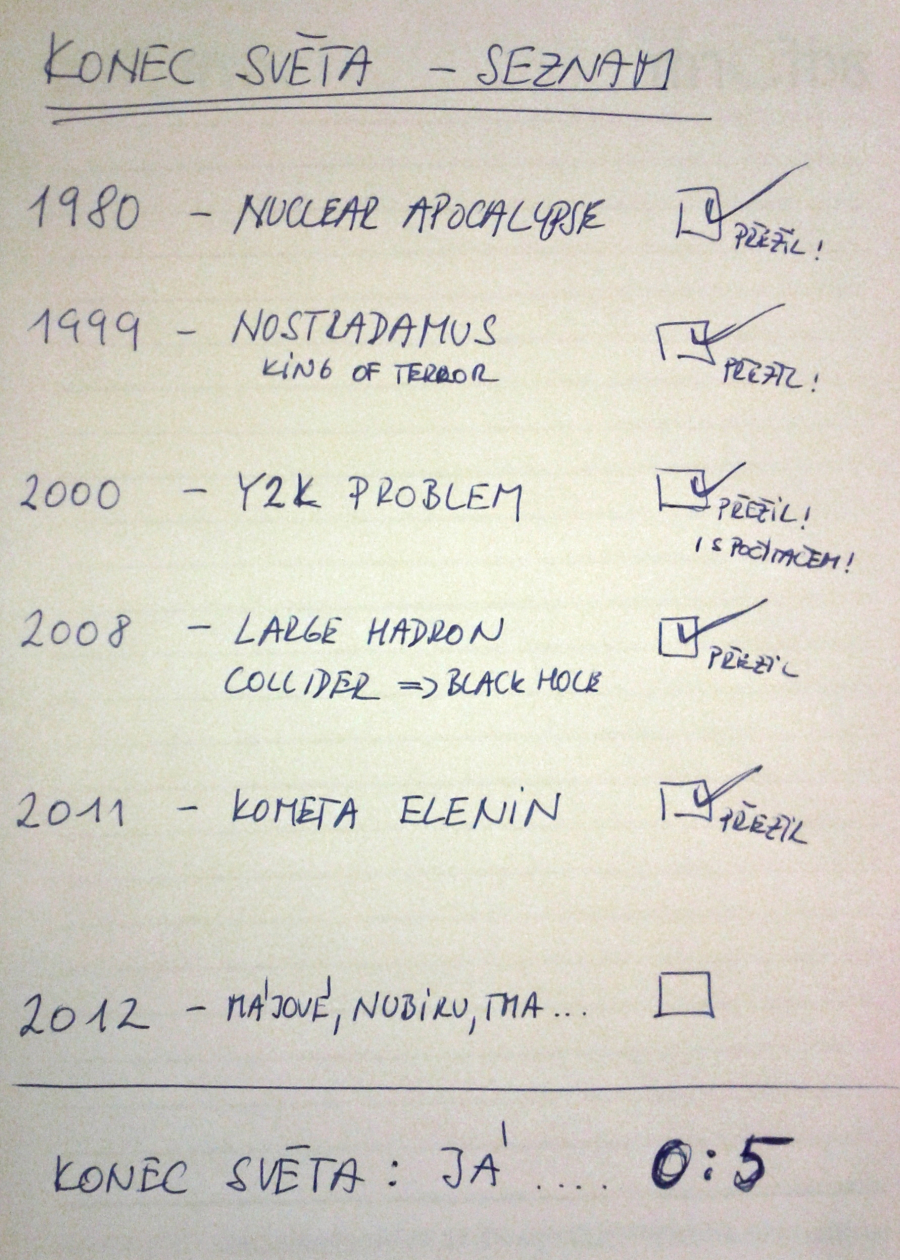 KONEC SVĚTA - SEZNAM
1980 - NUCLEAR APOCALYPSE
PŘEŽIL!
1999 - NOSTRADAMUS
KING OF TERROR
PŘEŽIL!
2000 - Y2K PROBLEM
PŘEŽIL!
I S POČÍTAČEM!
2008 - LARGE HADRON
COLLIDER => BLACK HOLE
PŘEŽIL
2011 - KOMETA ELENIN
PŘEŽIL
2012 - MÁJOVÉ, NUBIRU, TMA...
KONEC SVĚTA: JÁ .... 0:5